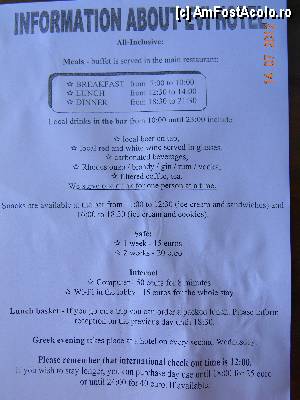 (c) AmFostAcolo.ro
INFORMATION ABOUT EVI HOTEL
All-Inclusive:
Meals - buffet is served in the main restaurant:
☆ BREAKFAST from 7:00 to 10:00
☆ LUNCH from 12:30 to 14:00
☆ DINNER from 18:30 to
Local drinks in the bar from 10:00 until 23:00 include
☆ local beer on tap,
☆ local red and white wine served in glasses,
☆ carbonated beverages,
☆ ouzo / brandy / gin / rum / vodka,
☆ filtered coffee, tea.
We serve drinks for one person at a time.
Snacks are available at the bar from to 12:30 (ice cream and sandwiches) and
16:00 to 18:30 (ice cream and cookies).
Safe:
☆ 1 week - 15 euros
☆ 2 weeks - 30 euro
Internet
☆ Computer - 50 cents for 8 minutes
☆ Wi-Fi in the lobby - 15 euros for the whole stay
Lunch basket - If you go on a trip you can order a packed lunch. Please inform
reception on the previous day until 18:30.
Greek evening takes place at a hotel on every second Wednesday.
Please remember that international check out time is 12:00.
If you wish to stay longer, you can purchase day use until 18:00 for 25 euro
or until 24:00 for 40 euro. If available.